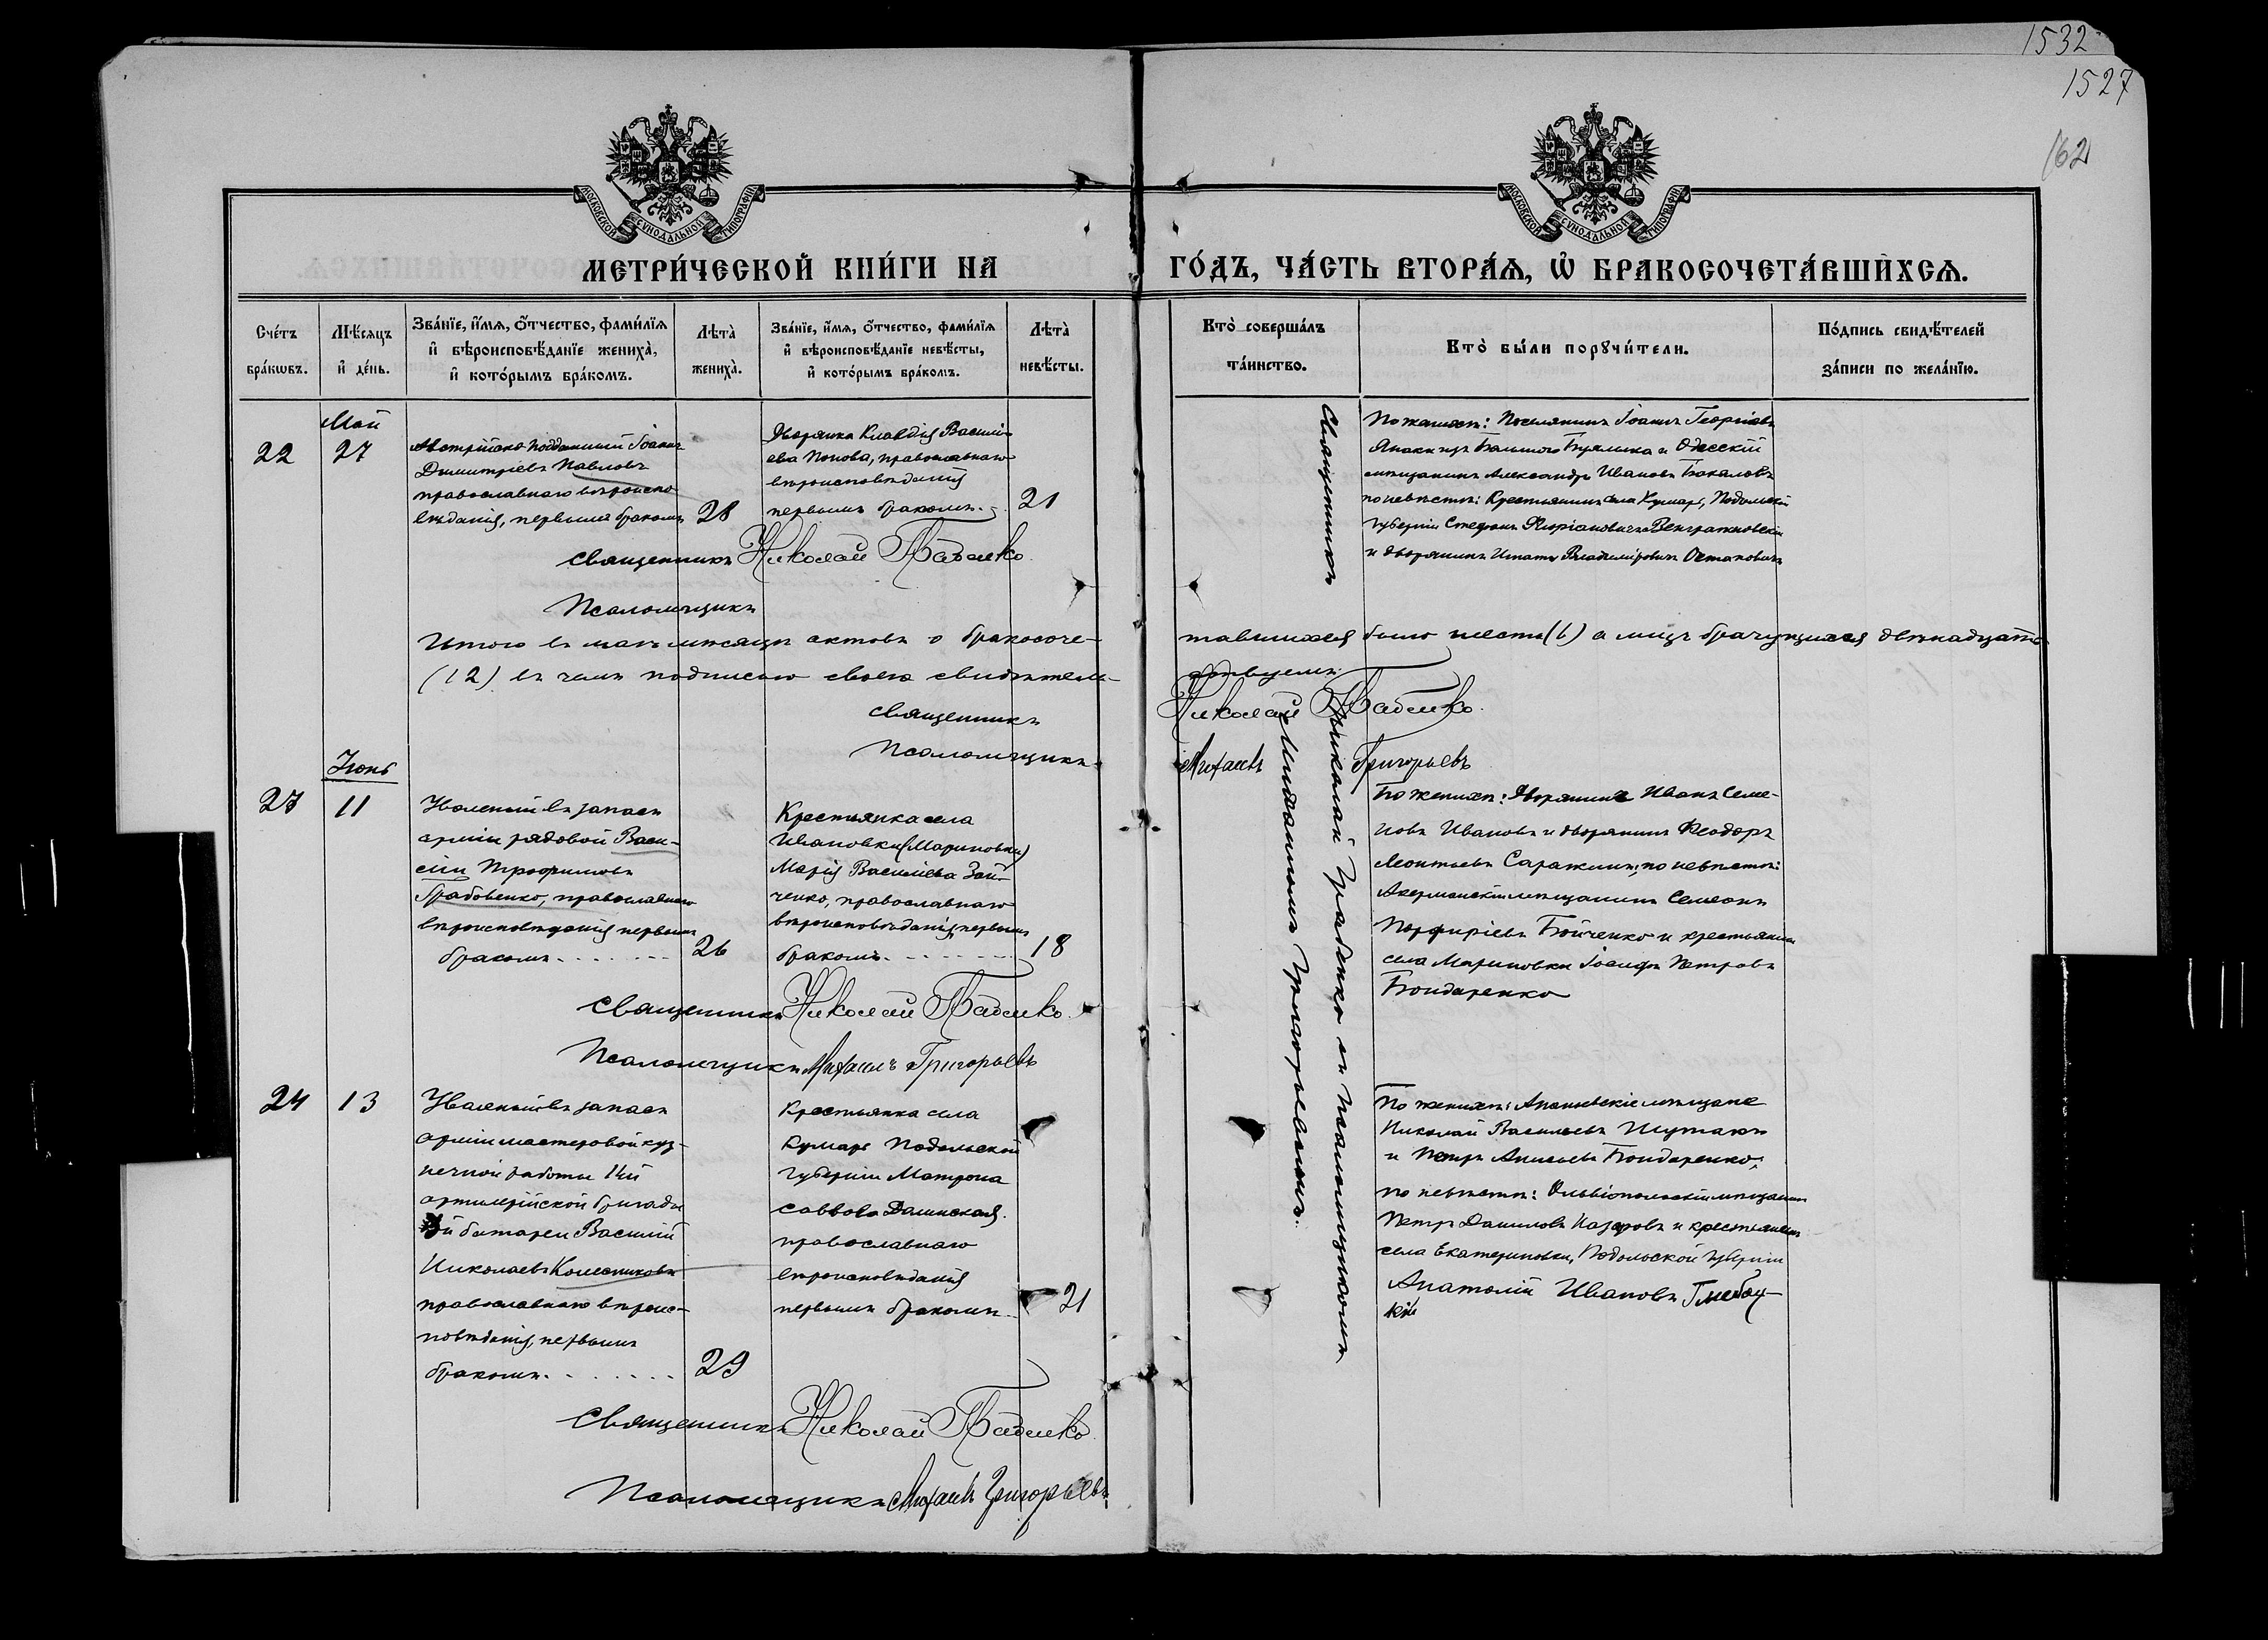 1532
1527
162
МОСКОВСКОЙ СѴНОДАЛЬНОЙ ТИПОГРАФІИ
МОСКОВСКОЙ СѴНОДАЛЬНОЙ ТИПОГРАФІИ
МЕТРИ́ЧЕСКОЙ КНИ́ГИ НА ГО́ДЪ, ЧА́СТЬ ВТОРА́Я, Ѡ БРАКОСОЧЕТА́ВШИХСЯ.
Сче́тъ бра́кѡвъ.
Мѣ́сяцъ и де́нь.
Зва́нїе, и́мя, ѻ́тчество, фами́лїя и вѣроисповѣ́данїе жениха̀, и кото́рымъ бра́комъ.
Лѣта̀ жениха̀.
Зва́нїе, и́мя, ѻ́тчество, фами́лїя и вѣроисповѣ́данїе невѣ́сты, и кото́рымъ бра́комъ.
Лѣта̀ невѣ́сты.
Кто̀ соверша́лъ та́инство.
Кто̀ бы́ли порꙋчи́тели.
По́дпись свидѣ́телей за́писи по жела́нїю.
Май
22
27
Австрійско-подданный Іоаннъ
Димитріевъ Павловъ
православнаго вѣроиспо
вѣданія, первымъ бракомъ
28
Дворянка Клавдія Василі-
ева Попова, православнаго
вѣроисповѣданія
первымъ бракомъ.
21
Священникъ
По женихѣ: Поселянинъ Іоаннъ Георгіевъ
изъ Большого Буялыка и Одесскій
мѣщанинъ Александръ Ивановъ Бакаловъ
по невѣстѣ: Крестьянинъ села Кумаръ, Подольской
губерніи Стефанъ
и дворянинъ Владиміровичъ
Священникъ Николай
Псаломщикъ
Итого въ маѣ мѣсяцѣ актовъ о бракосоче-
тавшихся было шесть (6) а лицъ брачущихся двѣнадцать
(12) въ чемъ подписью своею свидѣтель-
ствуемъ:
Священникъ Николай
Псаломщикъ Михаилъ Григорьевъ
Іюнь
23
11
Уволенный въ запасъ
арміи рядовой Васи-
лій Трофимовъ
Грабовенко, православнаго
вѣроисповѣданія первымъ
бракомъ
26
Крестьянка села
Ивановки (Мариновки)
Марія Васильева Зай-
ченко, православнаго
вѣроисповѣданія, первымъ
бракомъ.
18
Николай и псаломщикомъ
Михаиломъ Григорьевымъ.
По женихѣ: Дворянинъ Иванъ Семе-
новъ Ивановъ и дворянинъ Феодоръ
Леонтьевъ по невѣстѣ:
Акерманскій мѣщанинъ Симеонъ
Порфиріевъ Бойченко и крестьянинъ
села Мариновки Іосифъ Петровъ
Бондаренко
Священникъ Николай
Псаломщикъ Михаилъ Григорьевъ
24
13
Уволенный въ запасъ
арміи мастеровой куз-
нечной работы
артилерійской бригады
батареи Василій
Николаевъ Колесниковъ
православнаго вѣроис-
повѣданія, первымъ
бракомъ.
29
Крестьянка села
Кумаръ Подольской
губерніи Матрона
Саввова Далинская
православнаго
вѣроисповѣданія
первымъ бракомъ
21
По женихѣ: Ананьевскіе мѣщане
Николай Васильевъ Шутакъ
и Петръ Бондаренко;
по невѣстѣ: Ольвіопольскій мѣщанинъ
Петръ Даниловъ Назаровъ и крестьянинъ
села Екатериновки, Подольской губерніи
Анатолій Ивановъ
Священникъ Николай
Псаломщикъ Михаилъ Григорьевъ